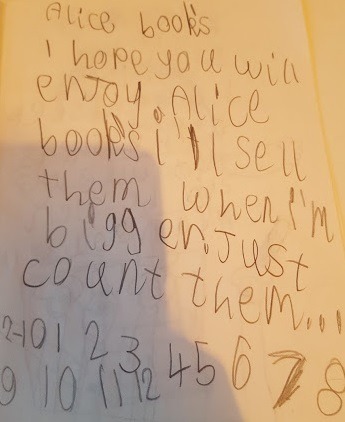 Alice book's
I hope you will
enjoy. Alice
book's i'll sell
them when I'm
biggen. Just
count them...
2-101 2 3 4 5 6 7 8
9 10 11 12